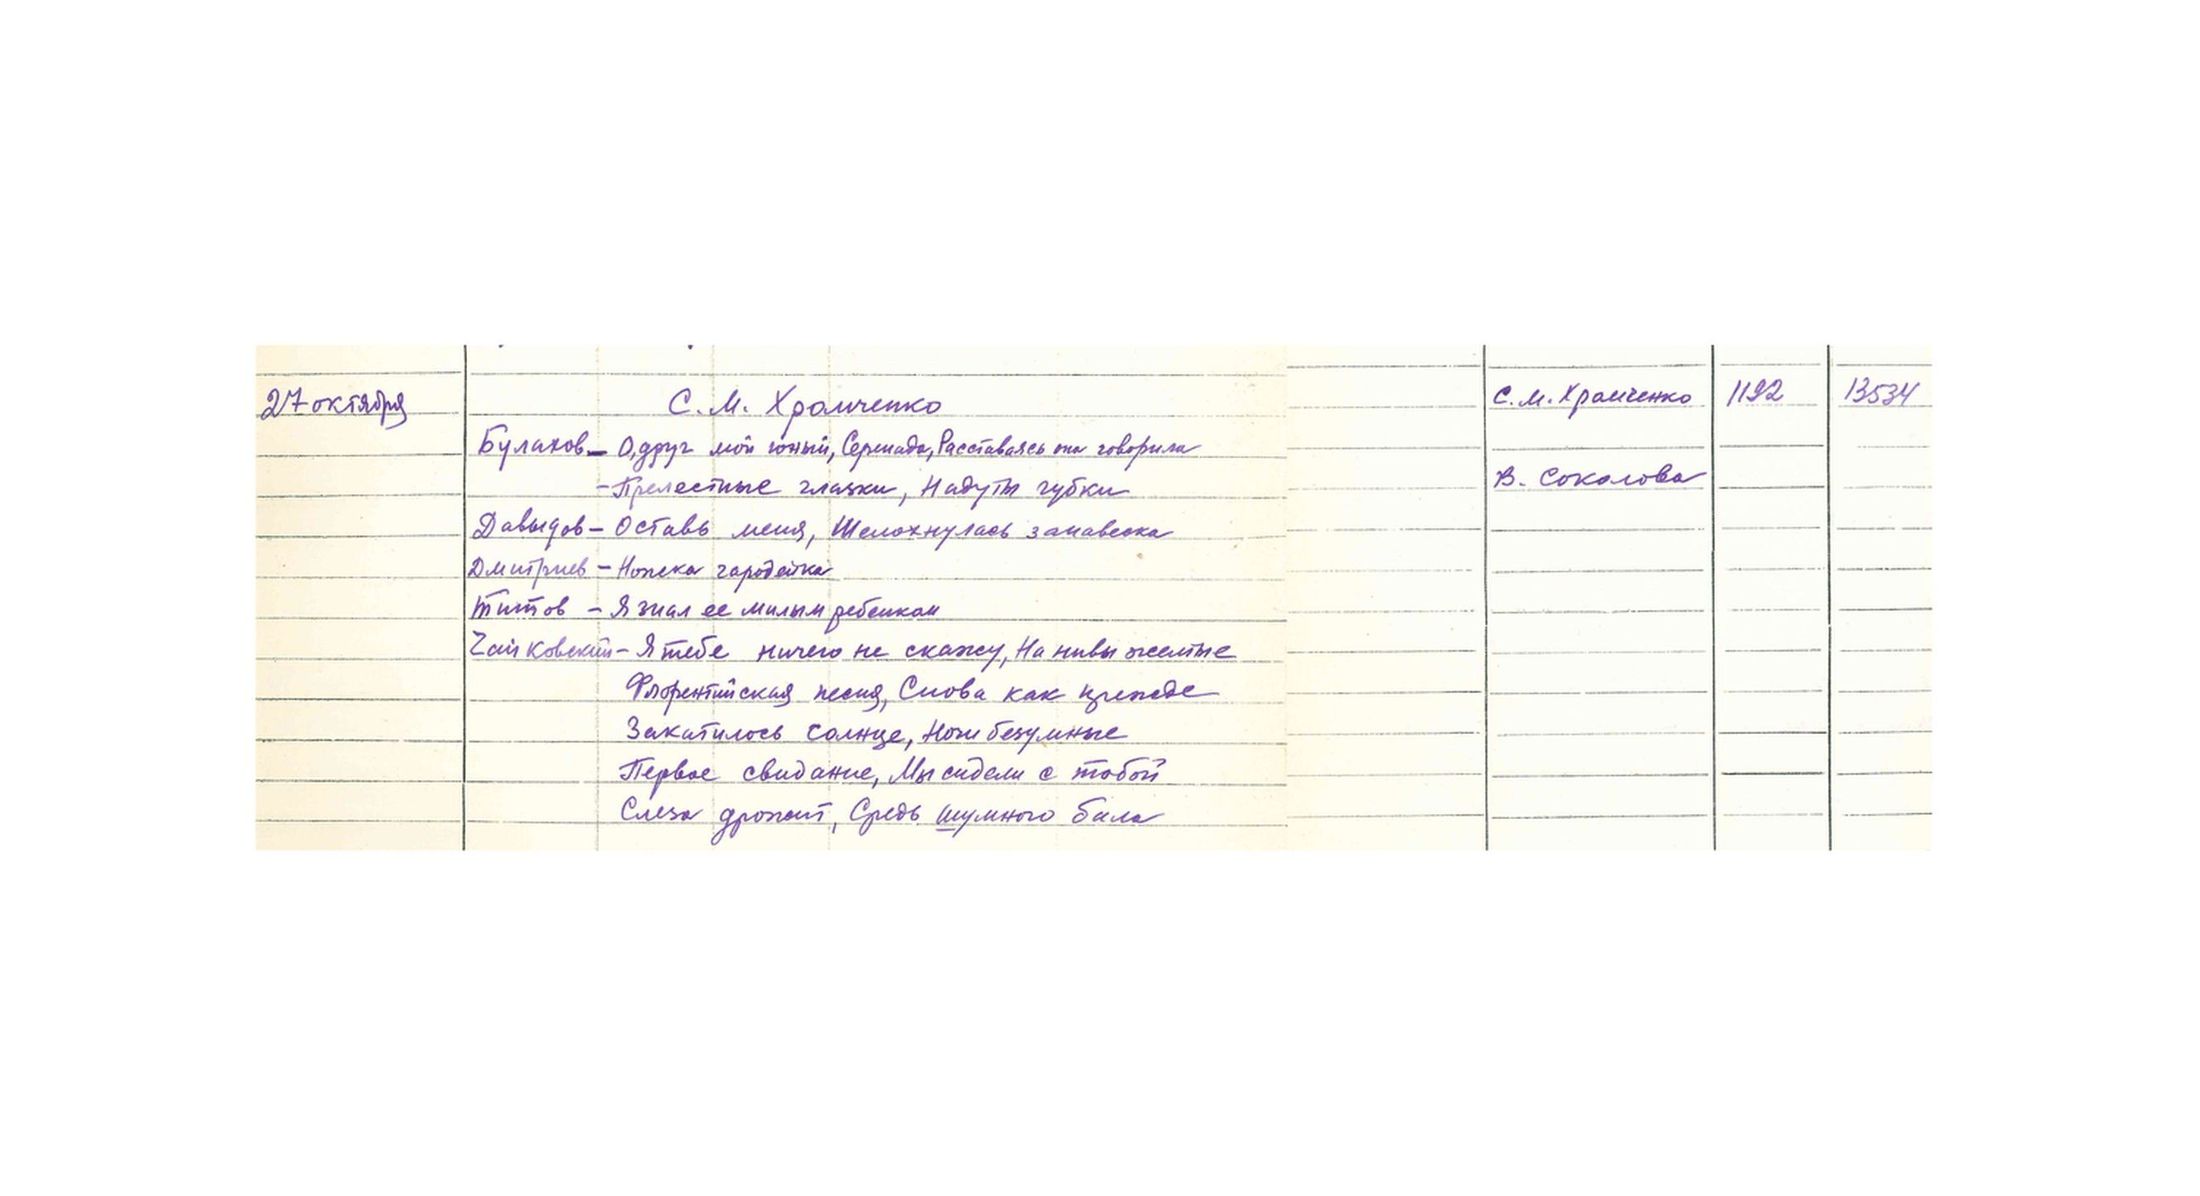 27 октября С. М. Хромченко С. М. Хромченко 1192 13534
Булахов – О, друг мой юный, Серенада, Расставаясь она говорила
– Прелестные глазки, Надуты губки В. Соколова
Давыдов – Оставь меня, Шелохнулась занавеска
Дмитриев – Ножка чародейка
Титов – Я знал ее милым ребенком
Чайковский – Я тебе ничего не скажу, На нивы желтые
Флорентийская песня, Снова как прежде
Закатилось солнце, Ночи безумные
Первое свидание, Мы сидели с тобой
Слеза дрожит, Средь шумного бала